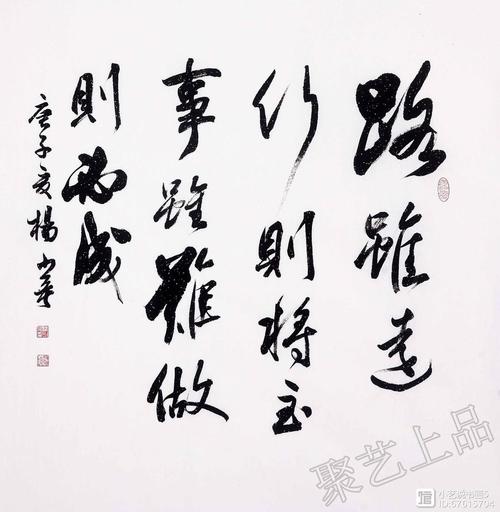 路雖遠
行則將至
事雖難做
則必成
庚子夏楊小華
聚艺上品
ID:67615704